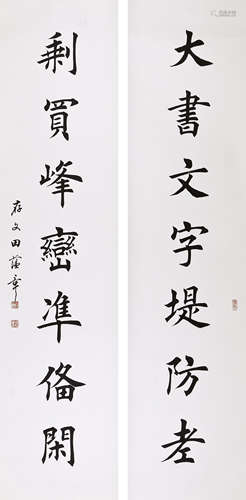 大書文字堤防老
剩買峰巒凖備閑
存文田蘊章